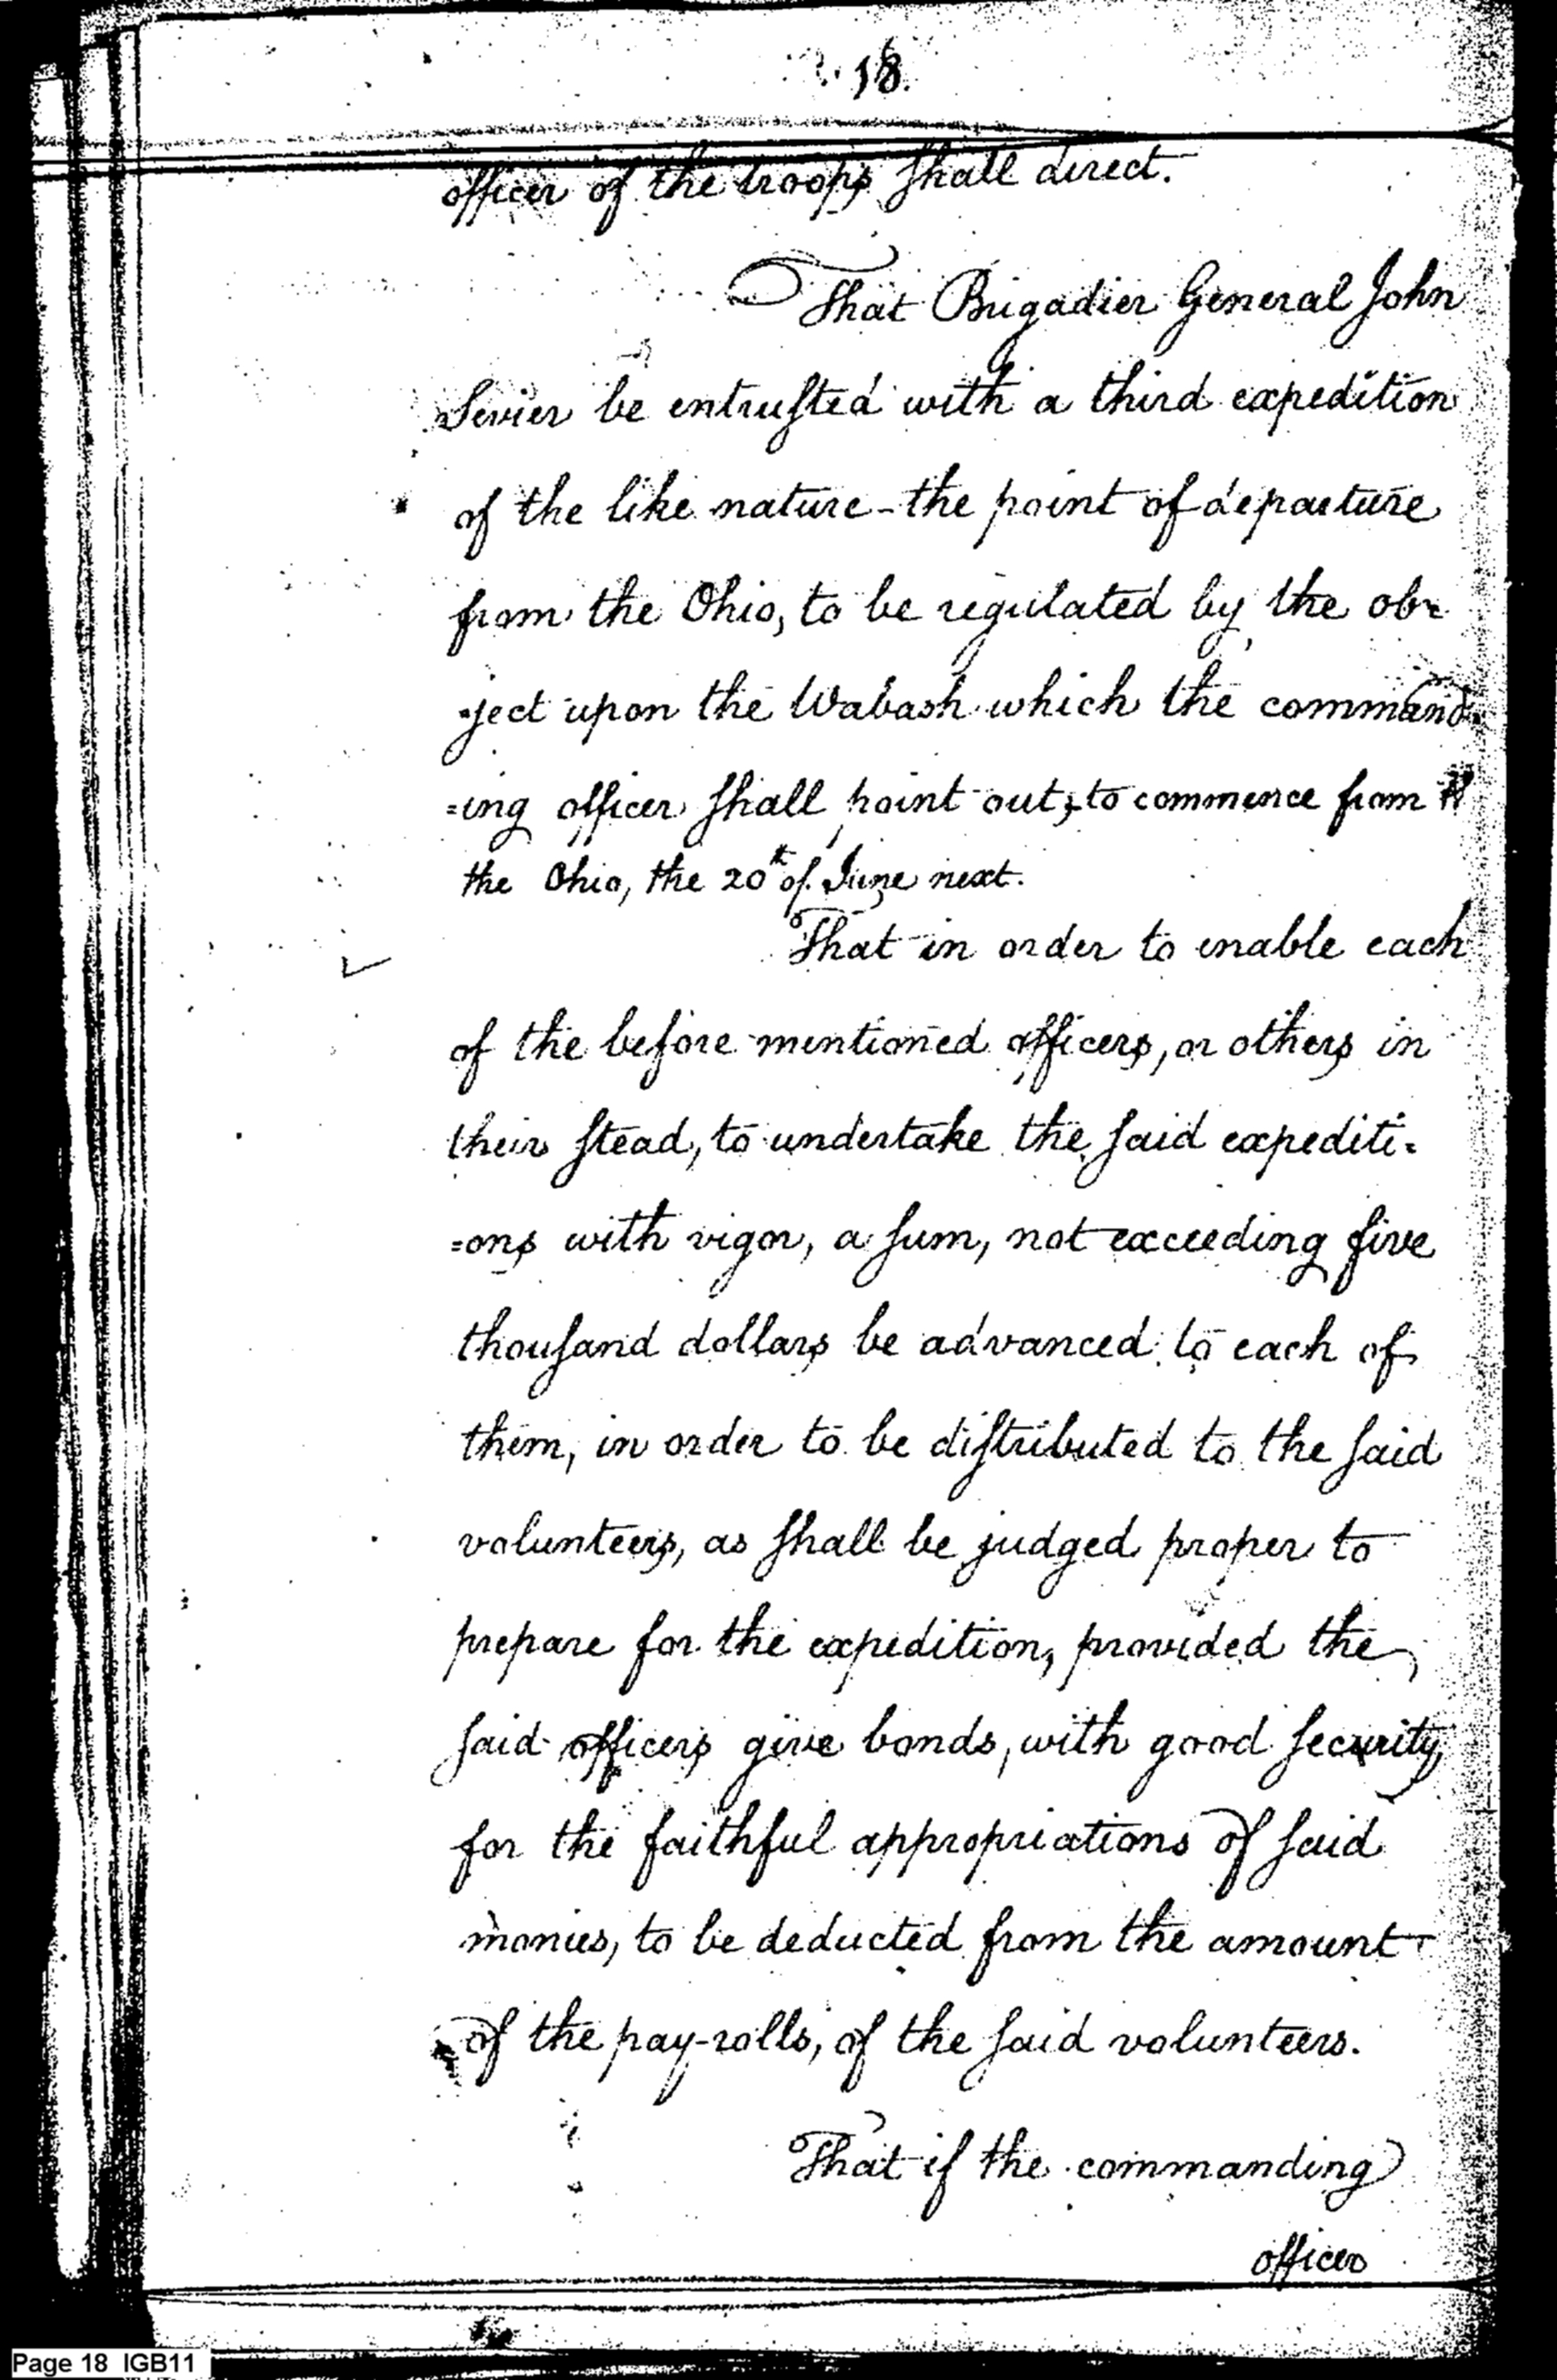 18.
officer of the troops shall direct.
That Brigadier General John
Sevier be entrusted with a third expedition
of the like nature - the point of departure
from the Ohio, to be regulated by the ob-
-ject upon the Wabash which the command-
=ing officer shall point out, to commence from
the Ohio, the 20th of June next.
That in order to enable each
of the before mentioned officers, or others in
their stead, to undertake the said expediti=
=ons with vigor, a sum, not exceeding five
thousand dollars be advanced to each of
them, in order to be distributed to the said
volunteers, as shall be judged proper to
prepare for the expedition, provided the
said officers give bonds, with good security,
for the faithful appropriations of said
monies, to be deducted from the amount
of the pay-rolls, of the said volunteers.
That if the commanding
officer
Page 18 IGB11